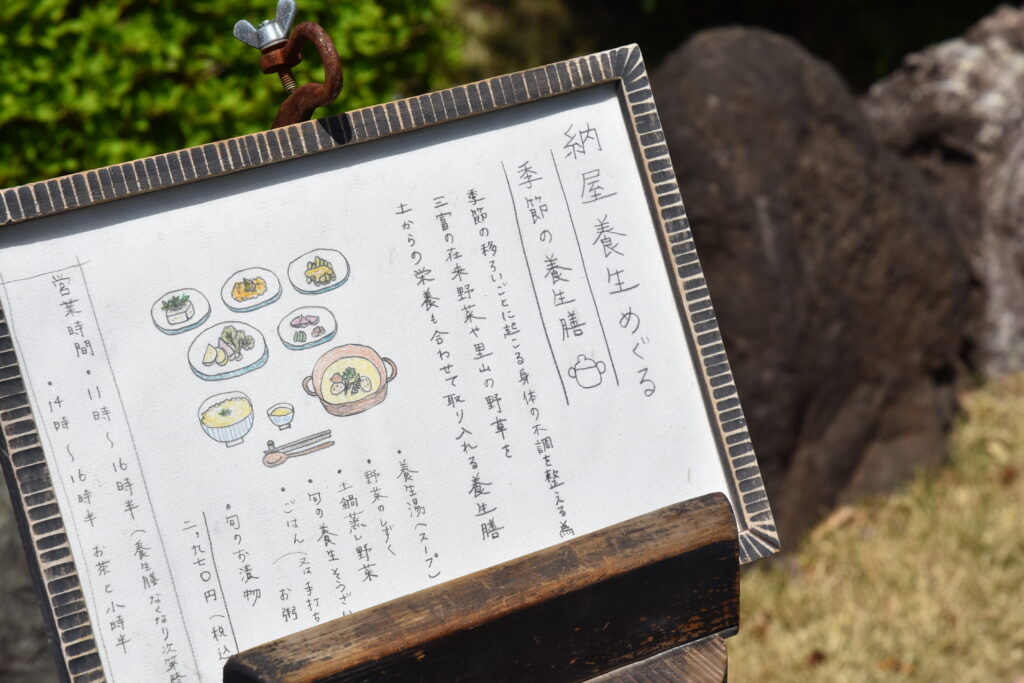 納屋養生めぐる
季節の養生膳
季節の移ろいごとに起こる身体の不調を整える為
三富の在来野菜や里山の野草を
土からの栄養も合わせて取り入れる養生膳
・養生湯(スープ)
・野菜のしずく
・土鍋蒸し野菜
・旬の養生そうざい
・ごはん(又は手打ち
お粥
・旬のお漬物
二,九七〇円(税込
営業時間・11時〜16時半(養生膳なくなり次第終
・14時〜16時半 お茶と小時半